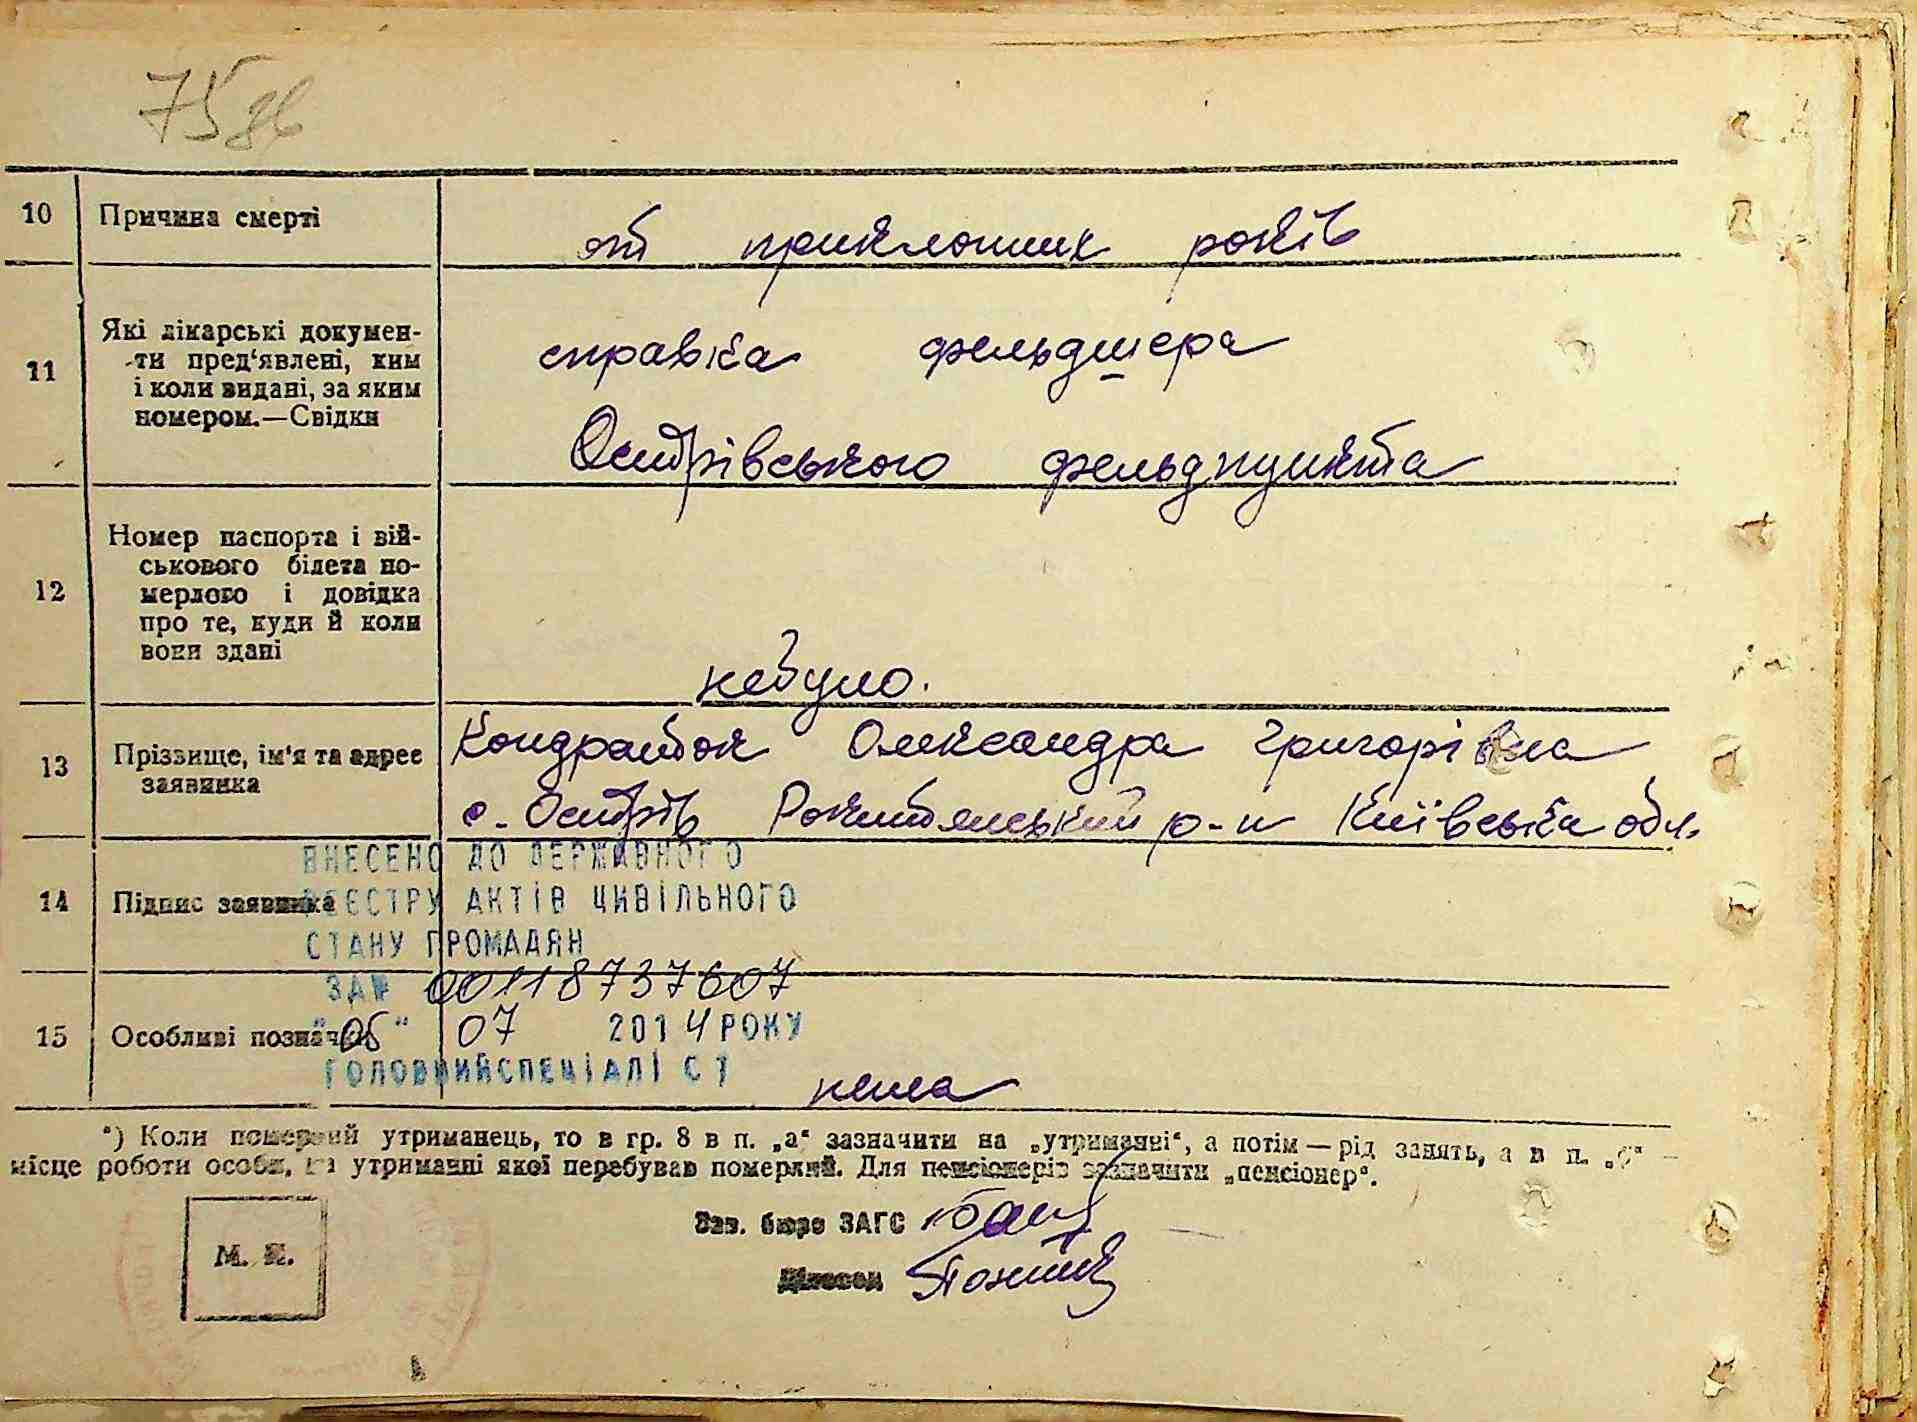 75
10 Причина смерті от приклоних років
11 Які лікарські докумен-
ти пред'явлені, ким
і коли видані, за яким
номером.—Свідки
справка фельдшера
Острівського фельдпункта
12 Номер паспорта і вій-
ськового білета по-
мерлого і довідка
про те, куди й коли
вони здані
небуло.
13 Прізвище, ім'я та адрес
заявника
Кондратюк Олександра Григорівна
с. Острів Рокитнянський р-н Київська обл.
ВНЕСЕНО ДО ДЕРЖАВНОГО
14 Підпис заявника
РЕЄСТРУ АКТІВ ЦИВІЛЬНОГО
СТАНУ ГРОМАДЯН
ЗА№ 00118737607
15 Особливі позначки
" 07 2014 РОКУ
ГОЛОВНИЙ СПЕЦІАЛІСТ
нема
*) Коли померлий утриманець, то в гр. 8 в п. „а“ зазначити на „утриманні“, а потім — рід занять, а в п. „б“ —
місце роботи особи, на утриманні якої перебував померлий. Для пенсіонерів зазначити „пенсіонер“.
Зав. бюро ЗАГС
М. П.
Діловод